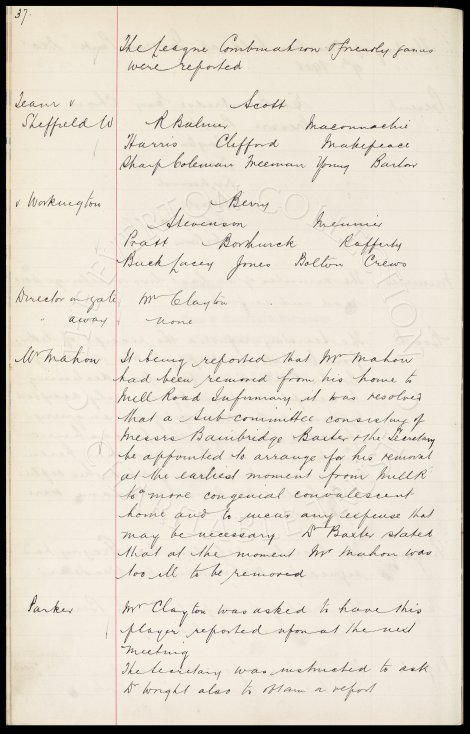 37.
The League Combination & friendly games
were reported
Team v Scott
Sheffield W R Balmer Maconnachie
Harris Clifford Makepeace
Sharp Coleman Freeman Young Barlow
v Workington Berry
Stevenson Meunier
Pratt Borthwick Rafferty
Buck Lacey Jones Bolton Crews
Director in gate Mr Clayton
" away none
Mr Mahon It being reported that Mr Mahon
had been removed from his home to
Mill Road Infirmary it was resolved
that a Sub committee consisting of
Messrs Bainbridge Baxter & the Secretary
be appointed to arrange for his removal
at the earliest moment from Mill R
to a more congenial convalescent
home and to incur any expense that
may be necessary Dr Baxter stated
that at the moment Mr Mahon was
too ill to be removed
Parker Mr Clayton was asked to have this
player reported upon at the next
Meeting
The Secretary was instructed to ask
Dr Wright also to obtain a report